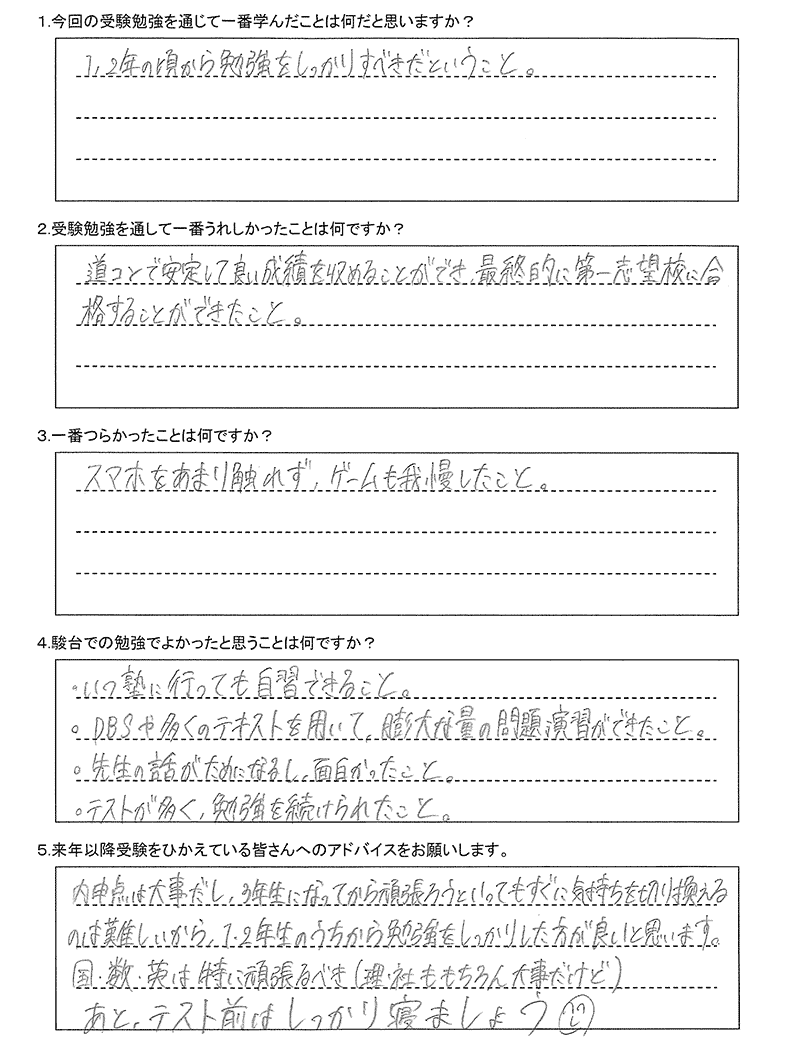 1.今回の受験勉強を通じて一番学んだことは何だと思いますか？
1,2年の頃から勉強をしっかりすべきだということ。
2.受験勉強を通して一番うれしかったことは何ですか？
道コンで安定して良い成績を収めることができ、最終的に第一志望校に合
格することができたこと。
3.一番つらかったことは何ですか？
スマホをあまり触れず、ゲームも我慢したこと。
4.駿台での勉強でよかったと思うことは何ですか？
・いつ塾に行っても自習できること。
・DBSや多くのテキストを用いて、膨大な量の問題演習ができたこと。
・先生の話がためになるし、面白かったこと。
・テストが多く、勉強を続けられたこと。
5.来年以降受験をひかえている皆さんへのアドバイスをお願いします。
内申点は大事だし、3年生になってから頑張ろうといってもすぐに気持ちを切り換える
のは難しいから、1・2年生のうちから勉強をしっかりした方が良いと思います。
国・数・英は特に頑張るべき(理・社ももちろん大事だけど)
あと、テスト前はしっかり寝ましょう